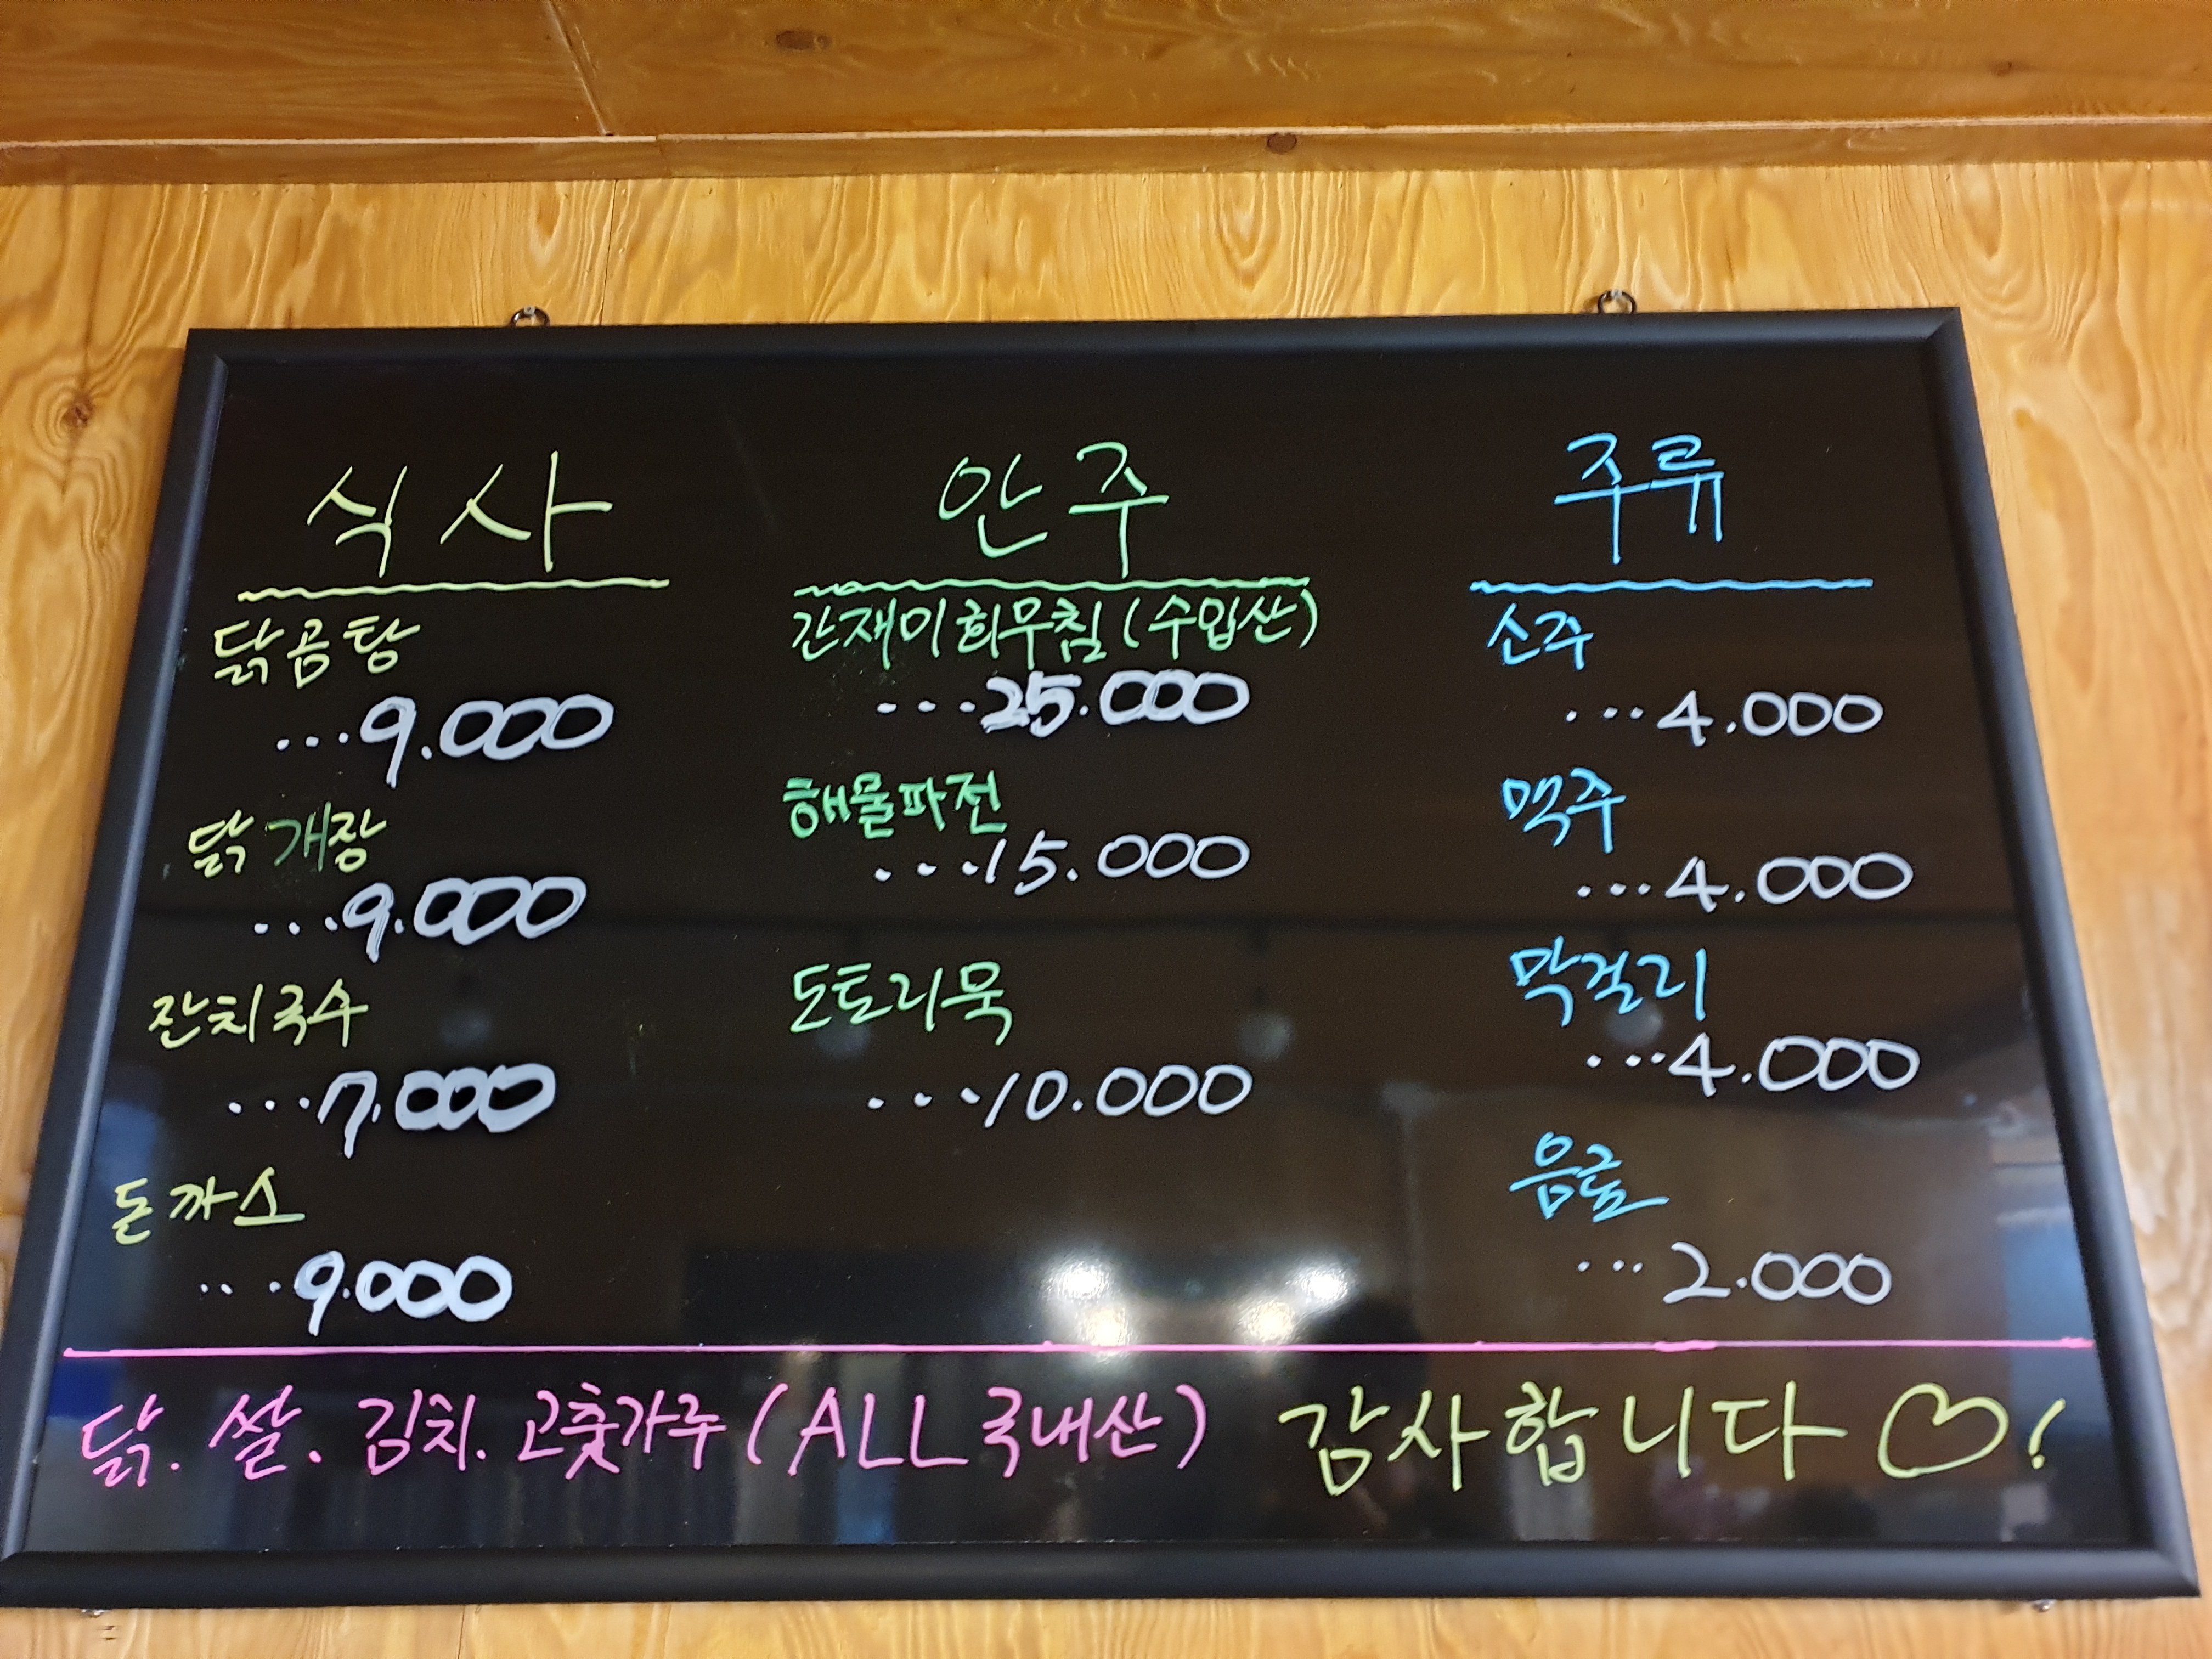 식사
닭곰탕
...9.000
닭개장
...9.000
잔치국수
...7.000
돈까스
...9.000
안주
간재미회무침(수입산)
...25.000
해물파전
...15.000
도토리묵
...10.000
주류
소주
...4.000
맥주
...4.000
막걸리
...4.000
음료
...2.000
닭. 쌀. 김치. 고춧가루(ALL 국내산)
감사합니다♡!